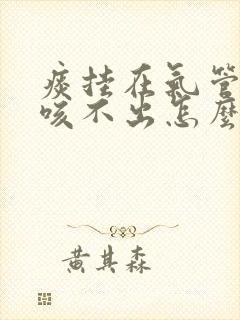 痰挂在氣管
咳不出怎麼
黄其森